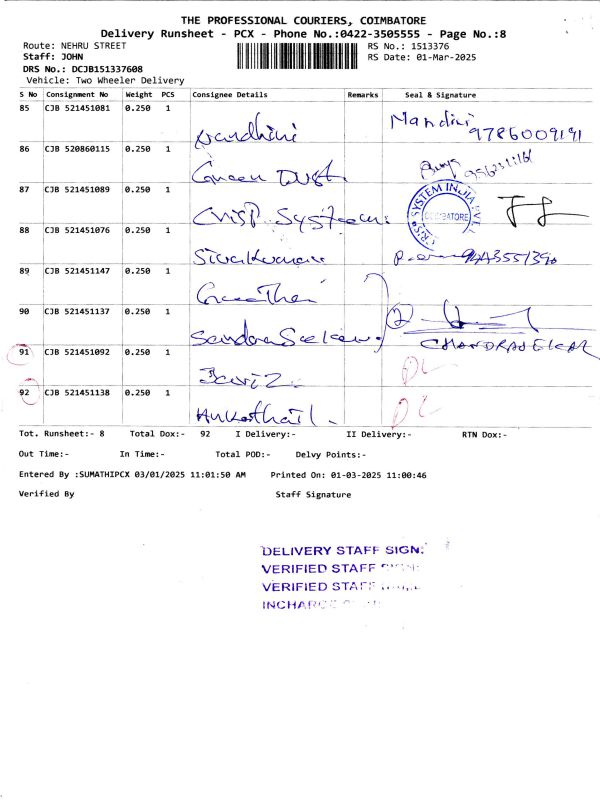 THE PROFESSIONAL COURIERS, COIMBATORE
Delivery Runsheet - PCX - Phone No.:0422-3505555 - Page No.:8
Route: NEHRU STREET RS No.: 1513376
Staff: JOHN RS Date: 01-Mar-2025
DRS No.: DCJB151337608
Vehicle: Two Wheeler Delivery
S No Consignment No Weight PCS Consignee Details Remarks Seal & Signature
85 CJB 521451081 0.250 1
Nandhini Nandini 9786009191
86 CJB 520860115 0.250 1
Green Dust.
87 CJB 521451089 0.250 1
Crisp Systeem. CRISP SYSTEM INDIA PVT COIMBATORE
88 CJB 521451076 0.250 1
Sivakumar 9443551390
89 CJB 521451147 0.250 1
90 CJB 521451137 0.250 1
CHANDRASEKAR
91 CJB 521451092 0.250 1
DL
92 CJB 521451138 0.250 1
DL
Tot. Runsheet:- 8 Total Dox:- 92 I Delivery:- II Delivery:- RTN Dox:-
Out Time:- In Time:- Total POD:- Delvy Points:-
Entered By :SUMATHIPCX 03/01/2025 11:01:50 AM Printed On: 01-03-2025 11:00:46
Verified By Staff Signature
DELIVERY STAFF SIGN:
VERIFIED STAFF SIGN:
VERIFIED STAFF